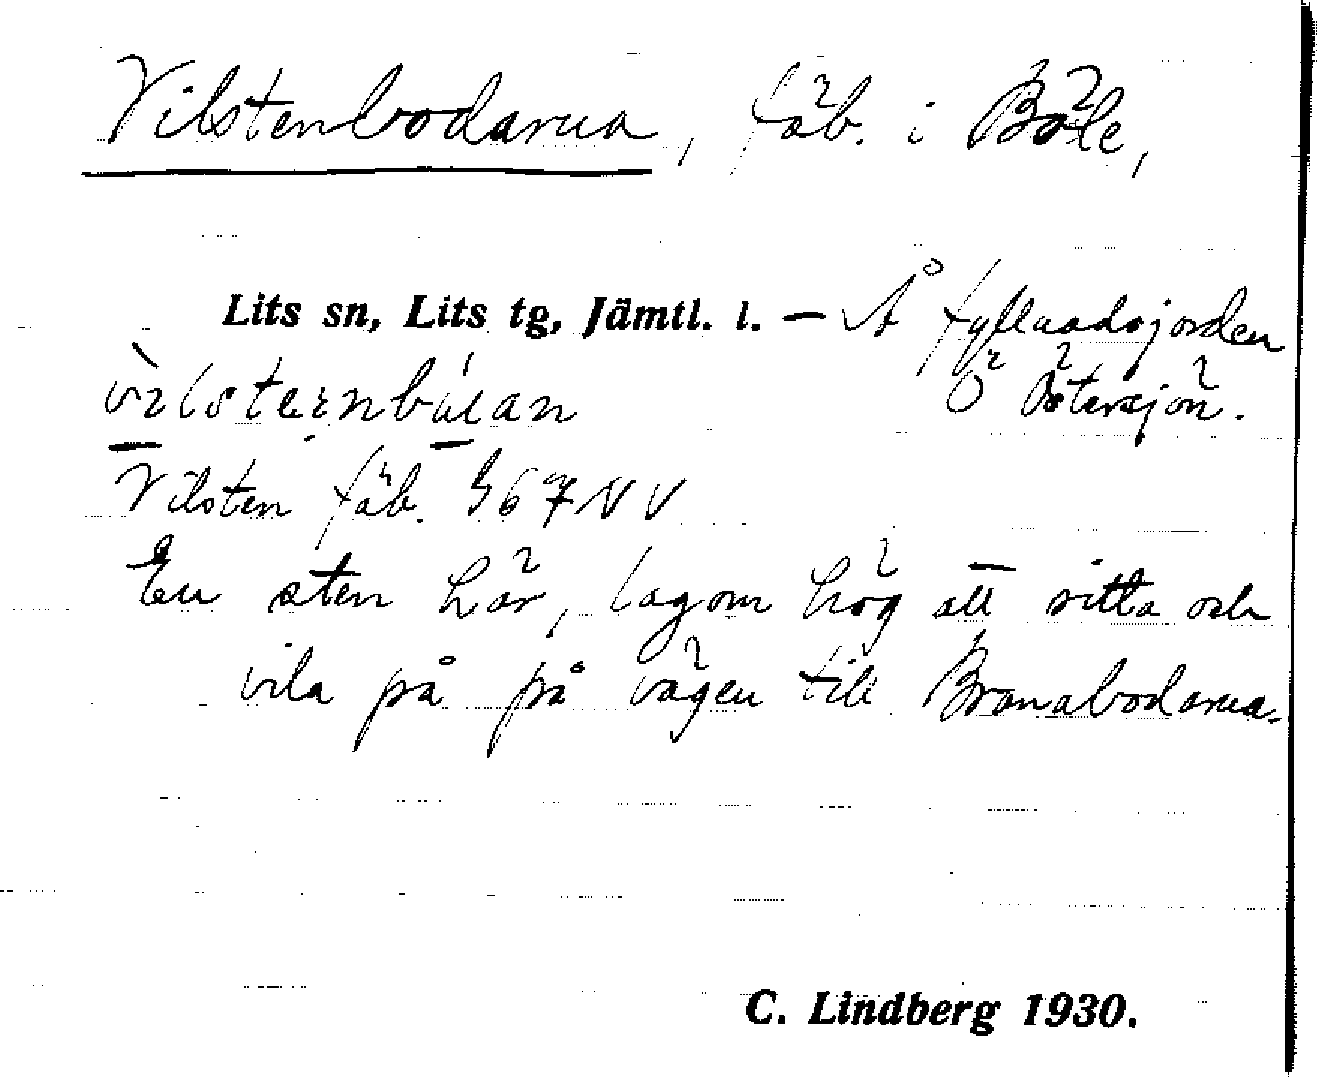 Vilstenbodarna, fäb. i Böle,
Lits sn, Lits tg, Jämtl. l. — Å fyllnadsjorden
Ö Östersjön.
vìlsteinbúan
Vilsten fäb. G 67 NV
En sten här, lagom hög att sitta och
vila på på vägen till Branabodarna.
C. Lindberg 1930.